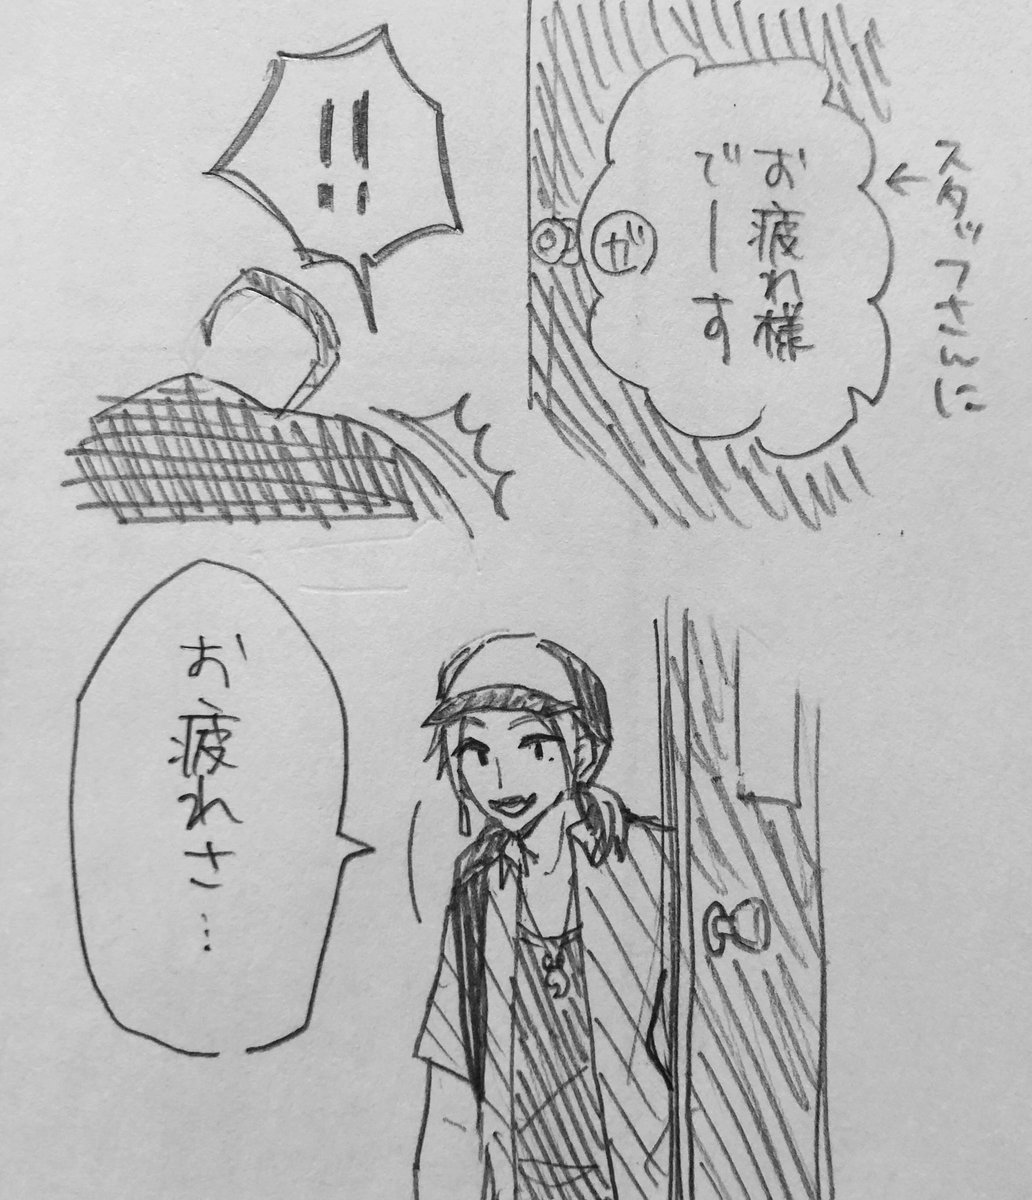 スタッフさんに
お疲れ様
でーす
ガ
!!
お疲れさ…